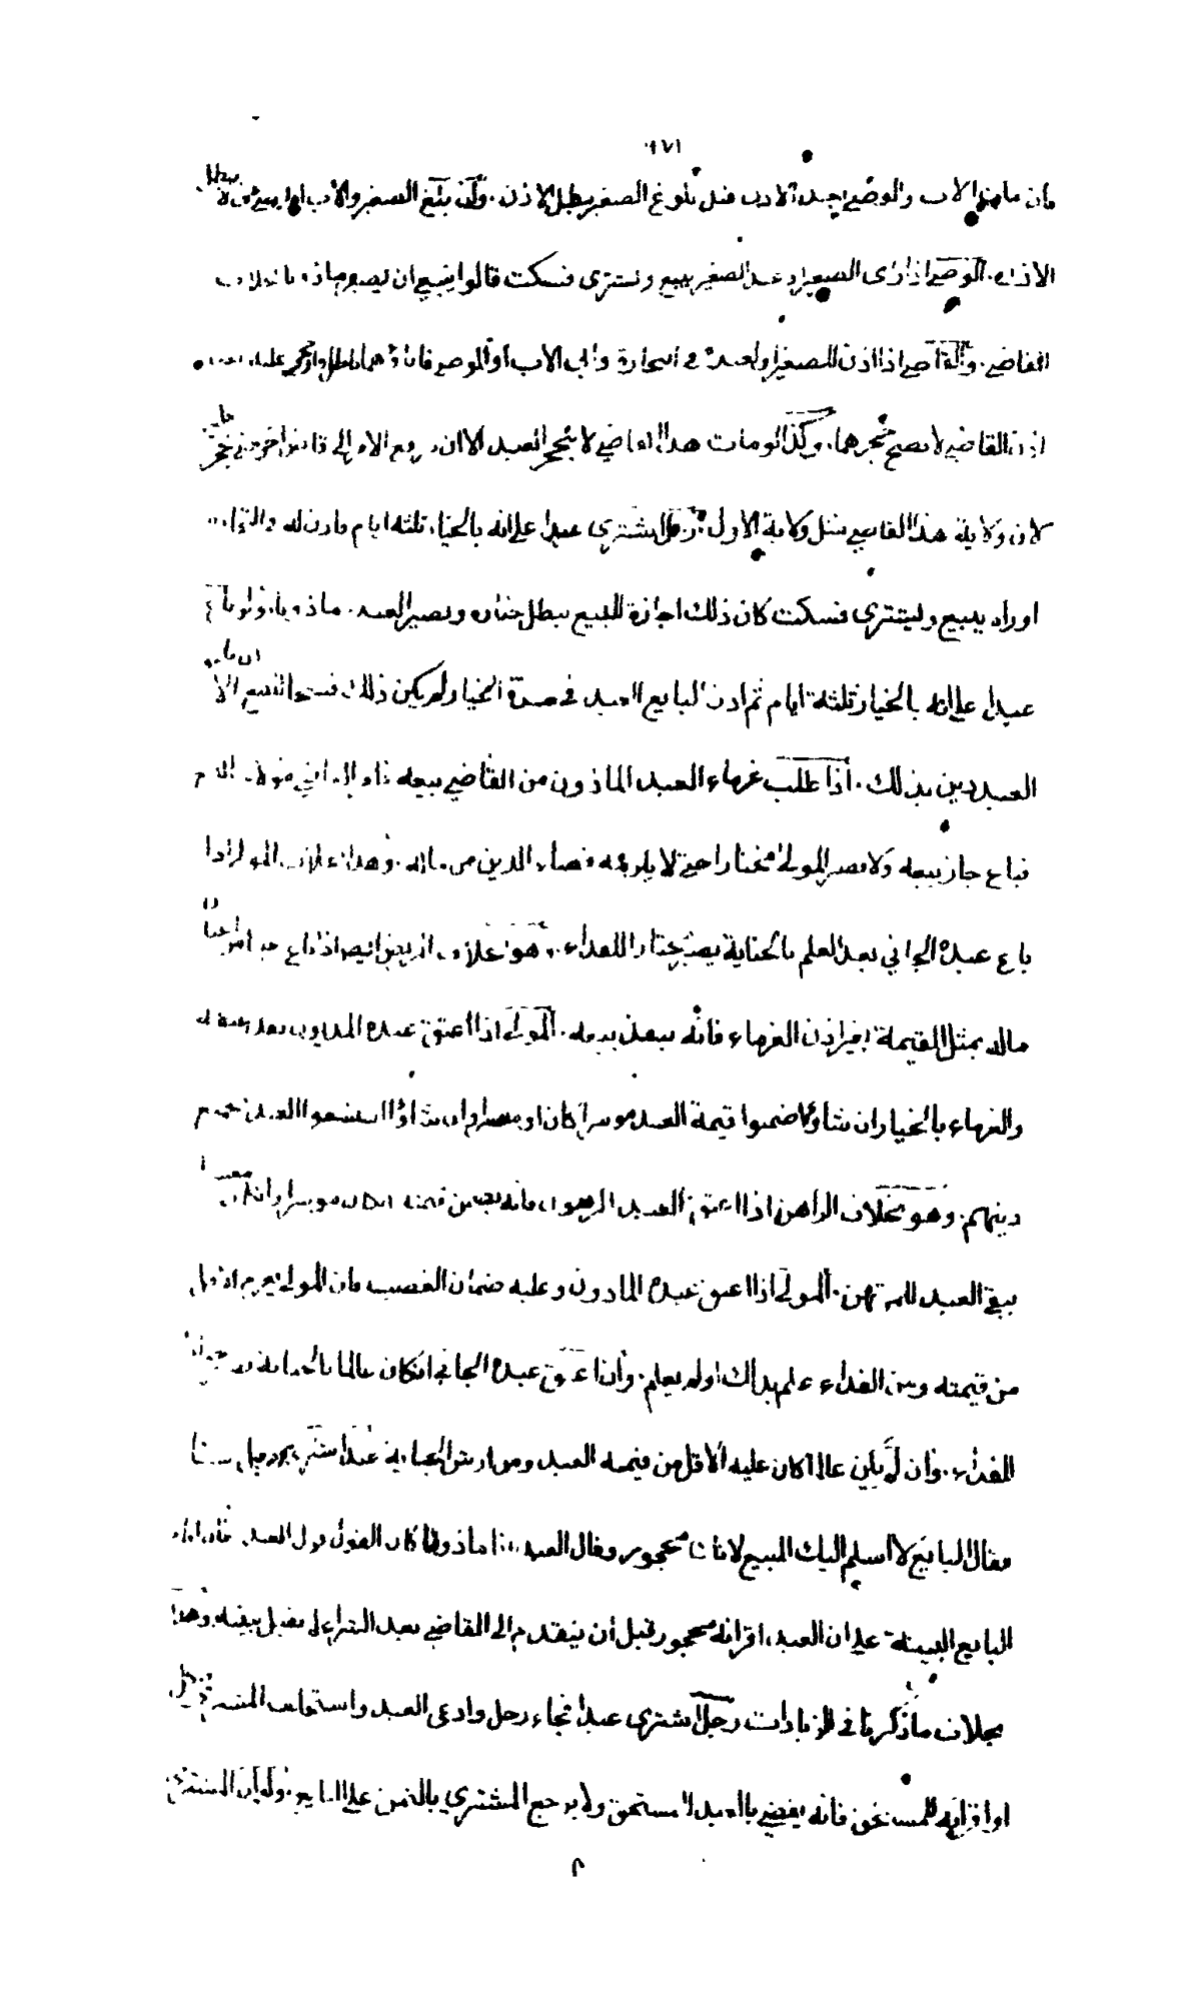 ١٧١
فان مات الاب والوصي بعد الاذن قبل بلوغ الصغير بطل الاذن. وان بلغ الصغير والاب او الوصي حي لا يبطل
الاذن. الوصي اذا راى الصغير او عبد الصغير يبيع ويشترى فسكت قالوا ينبغي ان يصير ماذونا بخلاف
القاضي. والقاضي اذا اذن للصغير او لعبده في التجارة وابى الاب او الوصي فاباؤهما باطل وان حجر عليه بعد
اذن القاضي لا يصح حجرهما. وكذا لو مات هذا القاضي لا ينحجر العبد الا ان يرفع الامر الى قاض اخر حتى يحجر عليه
لان ولاية هذا القاضي مثل ولاية الاول. رجل اشترى عبدا على انه بالخيار ثلثة ايام فاذن له في التجارة
او راه يبيع ويشترى فسكت كان ذلك اجازة للبيع يبطل خياره ويصير العبد ماذونا. ولو باع
عبدا على انه بالخيار ثلثة ايام ثم اذن البايع العبد في مدة الخيار لم يكن ذلك فسخا للبيع الا ان يلحق
العبد دين بذلك. اذا طلب غرماء العبد الماذون من القاضي بيعه
فباع جاز بيعه ولا يصير المولى مختارا حتى لا يلزمه قضاء الدين من ماله. وهذا بخلاف المولى اذا
باع عبده الجاني بعد العلم بالجناية يصير مختارا للفداء. وهو بخلاف
ماله بمثل القيمة بغير اذن الغرماء فانه ينفذ بيعه. المولى اذا اعتق عبده المديون بعد
والغرماء بالخيار ان شاؤا ضمنوا قيمة العبد موسرا كان او معسرا وان شاؤا استسعوا العبد في جميع
دينهم. وهو بخلاف الراهن اذا اعتق العبد المرهون فانه يضمن قيمته ان كان موسرا وان كان معسرا
يبقى العبد للمرتهن. المولى اذا اعتق عبده الماذون وعليه ضمان الغصب فان المولى يغرم الاقل
من قيمته ومن الفداء علم بذلك او لم يعلم. وان اعتق عبده الجاني ان كان عالما بالجناية
الفداء. وان لم يكن عالما كان عليه الاقل من قيمة العبد ومن ارش الجناية عبد اشترى من رجل شيئا
فقال البايع لا اسلم اليك المبيع لانك محجور وقال العبد انا ماذون كان القول قول العبد. فان اقام
البايع البينة على ان العبد اقر انه محجور قبل ان يتقدم الى القاضي بعد الشراء لم تقبل بينته. وهذا
بخلاف ما ذكرنا في الزيادات رجل اشترى عبدا فجاء رجل وادعى العبد واستحلف المشترى فنكل
او اقر انه للمستحق فانه يقضي بالعبد للمستحق ولا يرجع المشتري بالثمن على البايع. ولو ان المشترى